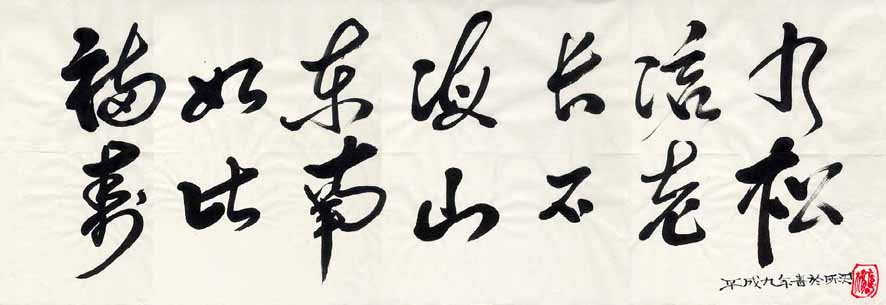 福如东海长流水
寿比南山不老松
平成九年書於所沢